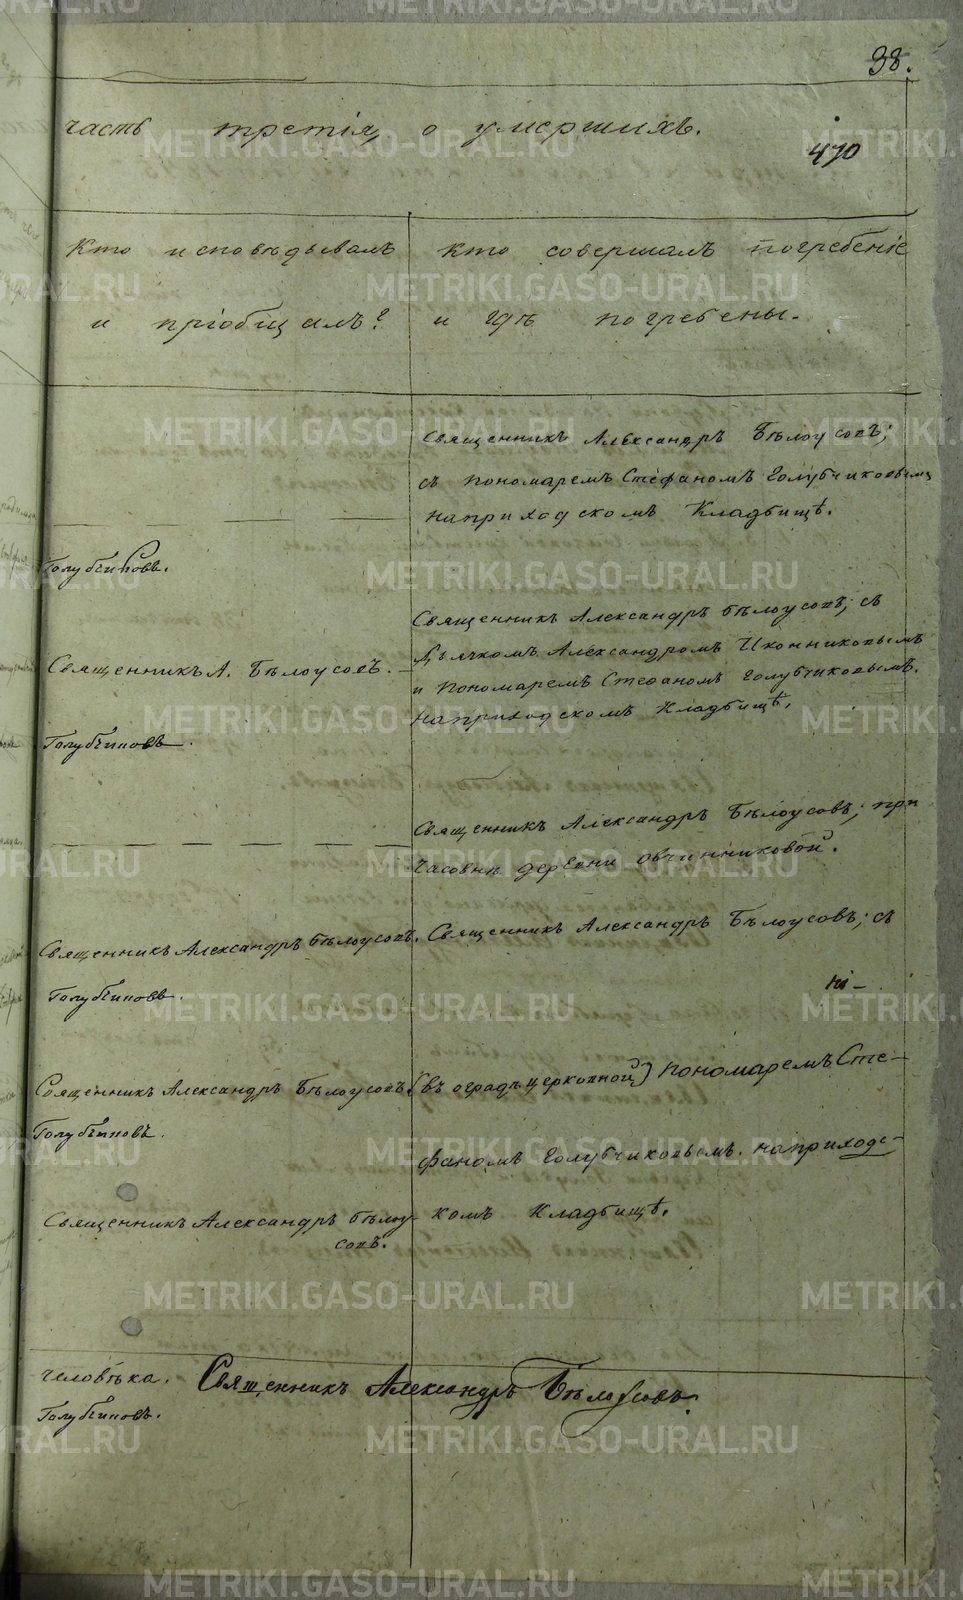 38.
часть третія, о умершихъ.
470
Кто исповѣдывалъ
и пріобщалъ?
кто совершалъ погребеніе
и гдѣ погребены.
Священникъ Александръ Бѣлоусовъ;
съ пономаремъ Стефаномъ Голубчиковымъ
на приходскомъ Кладбищѣ.
Голубчиковъ.
Священникъ А. Бѣлоусовъ.
Священникъ Александръ Бѣлоусовъ; съ
Дьячкомъ Александромъ Иконниковымъ
и Пономаремъ Стефаномъ Голубчиковымъ.
на приходскомъ Кладбищѣ.
Голубчиковъ.
Священникъ Александръ Бѣлоусовъ; при
Часовни деревни Овчинниковой.
Священникъ Александръ Бѣлоусовъ.
Священникъ Александръ Бѣлоусовъ; съ
Голубчиковъ.
Священникъ Александръ Бѣлоусовъ.
(въ оградѣ церковной) Пономаремъ Сте-
Голубчиковъ.
фаномъ Голубчиковымъ. на приходс-
Священникъ Александръ Бѣлоу-
совъ.
комъ Кладбищѣ.
человѣка. Священникъ Александръ Бѣлоусовъ
Голубчиковъ.
METRIKI.GASO-URAL.RU